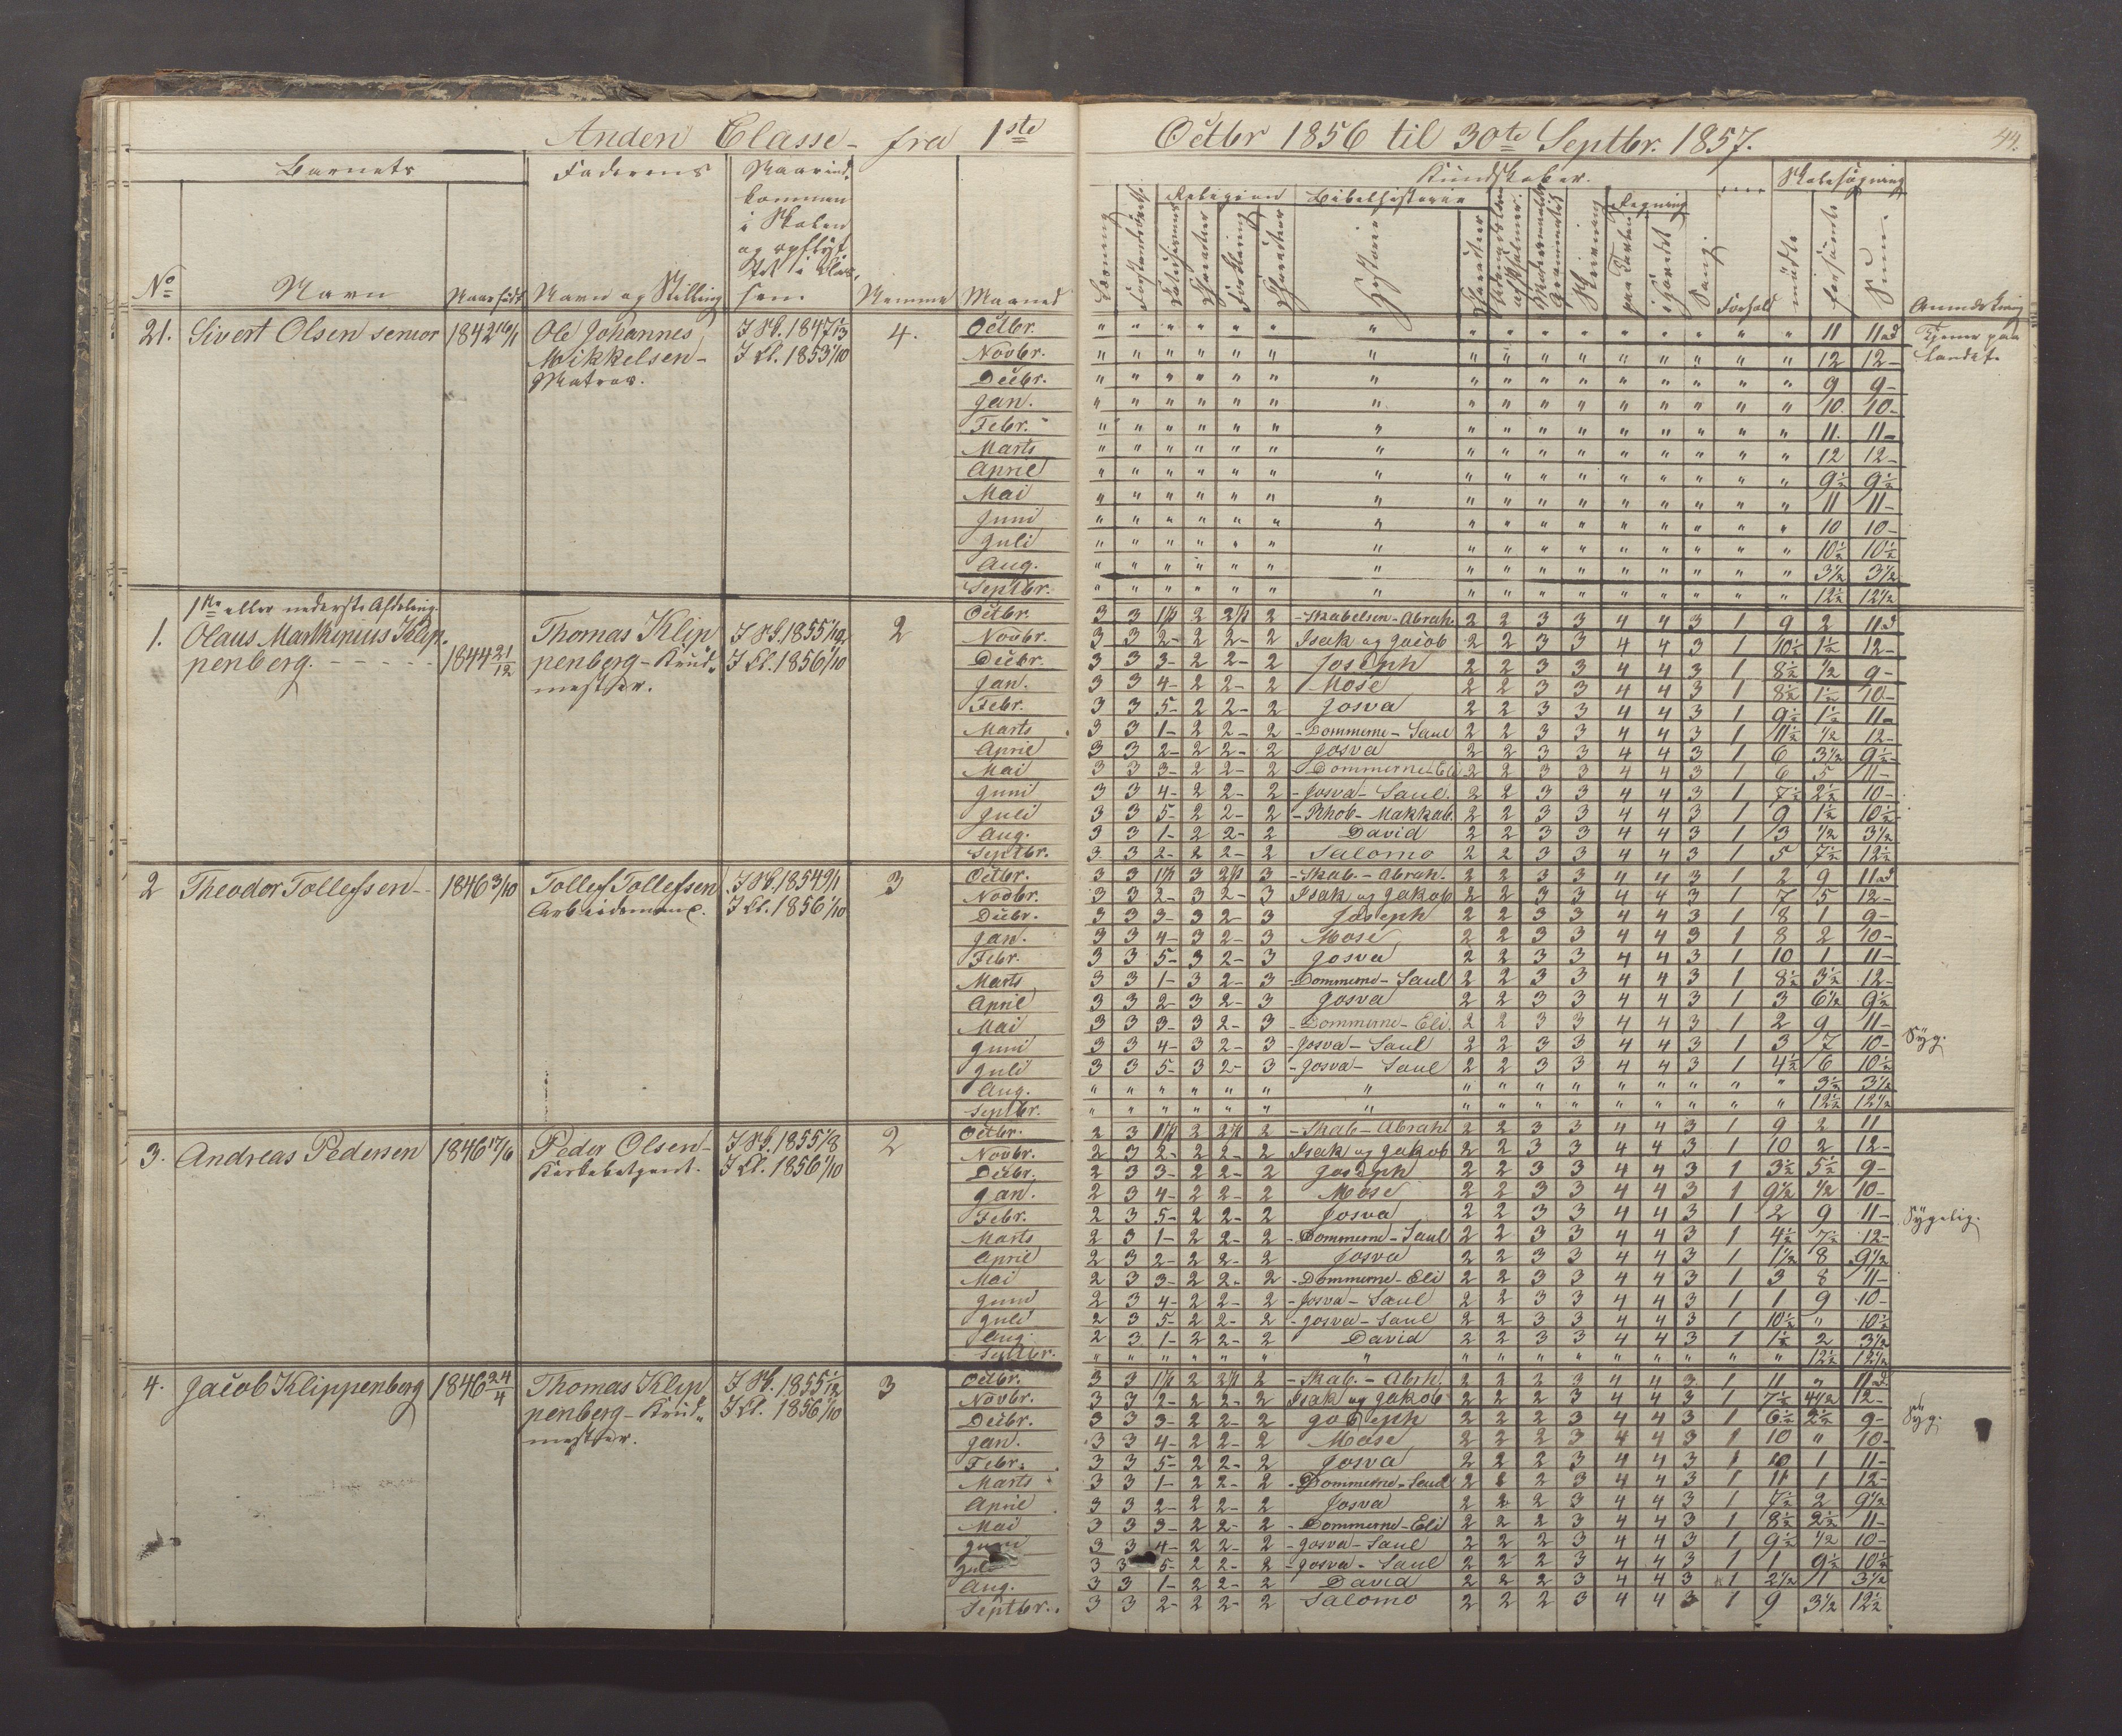 Anden Classe - fra 1ste Octbr 1856 til 30te Septbr. 1857.
44.
Barnets
No
Navn
Naar født
Faderens
Navn og Stilling
Naar ind-
kommen
i Skolen
og opflyt-
tet i Clas-
sen
Nemme
Maaned
Kundskaber.
Religion
Bibelhistorie
Regning
Læsning
Forklaring
Historier
Skrivning
paa Tavlen
i Hovedet
Sang
Forhold
Skolesøgning
mødte
forsømte
Sum
Anmærkning
21. Sivert Olsen senior 1842 16/1 Ole Johannes I Sk. 1847 1/3 4.
Mikkelsen - I Cl. 1853 1/10
Matros.
Octbr. " " " " " " " " " " " " " " " " 11 11 d Tjener paa
Novbr. " " " " " " " " " " " " " " " " 12 12 - Landet.
Decbr. " " " " " " " " " " " " " " " " 9 9 -
Jan. " " " " " " " " " " " " " " " " 10. 10 -
Febr. " " " " " " " " " " " " " " " " 11. 11 -
Marts " " " " " " " " " " " " " " " " 12 12 -
April " " " " " " " " " " " " " " " " 9½ 9½
Mai " " " " " " " " " " " " " " " " 11 11 -
Juni " " " " " " " " " " " " " " " " 10 10 -
Juli " " " " " " " " " " " " " " " " 10½ 10½
Aug. " " " " " " " " " " " " " " " " 3½ 3½
Septbr. " " " " " " " " " " " " " " " " 12½ 12½
1ste eller nederste Afdeling.
1. Olaus Markinius Klip-
penberg. - - - - - 1844 21/12
Thomas Klip
penberg - Krud-
mester.
I Sk. 1855 1/12
I Cl. 1856 1/10
2
Octbr. 3 3 1½ 2 2½ 2 - Skabelsen - Abrah. 2 2 3 3 4 4 3 1 9 2 11 d
Novbr. 3 3 2 - 2 2 - 2 Isak og Jacob 2 2 3 3 4 4 3 1 10½ 1½ 12 -
Decbr. 3 3 3 - 2 2 - 2 Joseph 2 2 3 3 4 4 3 1 8½ ½ 9 -
Jan. 3 3 4 - 2 2 - 2 Mose 2 2 3 3 4 4 3 1 8½ 1½ 10 -
Febr. 3 3 5 - 2 2 - 2 Josva 2 2 3 3 4 4 3 1 9½ 1½ 11 -
Marts 3 3 1 - 2 2 - 2 - Dommerne - Saul 2 2 3 3 4 4 3 1 11½ ½ 12 -
April 3 3 2 - 2 2 - 2 Josva 2 2 3 3 4 4 3 1 6 3½ 9½
Mai 3 3 3 - 2 2 - 2 - Dommerne - Eli 2 2 3 3 4 4 3 1 6 5 11 -
Juni 3 3 4 - 2 2 - 2 - Josva - Saul. 2 2 3 3 4 4 3 1 7½ 2½ 10 -
Juli 3 3 5 - 2 2 - 2 - Rhob - Makkab. 2 2 3 3 4 4 3 1 9 1½ 10½
Aug. 3 3 1 - 2 2 - 2 David 2 2 3 3 4 4 3 1 3 ½ 3½
Septbr. 3 3 2 - 2 2 - 2 Salomo 2 2 3 3 4 4 3 1 5 7½ 12½
2 Theodor Tollefsen - 1846 3/10 Tollef Tollefsen I Sk. 1854 9/1 3
Arbeidsmand. I Cl. 1856 1/10
Octbr. 3 3 1½ 3 2½ 3 - Skab. - Abrah. 2 2 3 3 4 4 3 1 2 9 11 d
Novbr. 3 3 2 - 3 2 - 3 Isak og Jakob 2 2 3 3 4 4 3 1 7 5 12 -
Decbr. 3 3 3 - 3 2 - 3 Joseph 2 2 3 3 4 4 3 1 8 1 9 -
Jan. 3 3 4 - 3 2 - 3 Mose 2 2 3 3 4 4 3 1 8 2 10 -
Febr. 3 3 5 - 3 2 - 3 Josva 2 2 3 3 4 4 3 1 10 1 11 -
Marts 3 3 1 - 3 2 - 3 - Dommerne - Saul 2 2 3 3 4 4 3 1 8½ 3½ 12 -
April 3 3 2 - 3 2 - 3 Josva 2 2 3 3 4 4 3 1 3 6½ 9½
Mai 3 3 3 - 3 2 - 3 - Dommerne - Eli. 2 2 3 3 4 4 3 1 2 9 11 -
Juni 3 3 4 - 3 2 - 3 - Josva - Saul 2 2 3 3 4 4 3 1 3 7 10 - Syg.
Juli 3 3 5 - 3 2 - 3 - Josva - Saul 2 2 3 3 4 4 3 1 4½ 6 10½
Aug. " " " " " " " " " " " " " " " " 3½ 3½
Septbr. " " " " " " " " " " " " " " " " 12½ 12½
3. Andreas Pedersen 1846 17/6 Peder Olsen - I Sk. 1855 1/8 2
I Cl. 1856 1/10
Octbr. 2 3 1½ 2 2½ 2 - Skab - Abrah 2 2 3 3 4 4 3 1 9 2 11
Novbr. 2 3 2 - 2 2 - 2 Isak og Jakob 2 2 3 3 4 4 3 1 10 2 12 -
Decbr. 2 3 3 - 2 2 - 2 Joseph 2 2 3 3 4 4 3 1 3½ 5½ 9 -
Jan. 2 3 4 - 2 2 - 2 Mose 2 2 3 3 4 4 3 1 9½ ½ 10 -
Febr. 2 3 5 - 2 2 - 2 Josva 2 2 3 3 4 4 3 1 2 9 11 - Sygelig.
Marts 2 3 1 - 2 2 - 2 - Dommerne - Saul 2 2 3 3 4 4 3 1 4½ 7½ 12 -
April 2 3 2 - 2 2 - 2 Josva 2 2 3 3 4 4 3 1 1½ 8 9½
Mai 2 3 3 - 2 2 - 2 - Dommerne - Eli 2 2 3 3 4 4 3 1 3 8 11 -
Juni 2 3 4 - 2 2 - 2 - Josva - Saul 2 2 3 3 4 4 3 1 1 9 10 -
Juli 2 3 5 - 2 2 - 2 - Josva - Saul 2 2 3 3 4 4 3 1 10½ " 10½
Aug. 2 3 1 - 2 2 - 2 David 2 2 3 3 4 4 3 1 1½ 2 3½
Septbr. " " " " " " " " " " " " " " " " 12½ 12½
4. Jacob Klippenberg 1846 24/4 Thomas Klip I Sk. 1855 1/12 3
penberg - Krud- I Cl. 1856 1/10
mester.
Octbr. 3 3 1½ 2 2½ 2 - Skab. - Abrh. 2 2 2 3 4 4 3 1 11 " 11 d
Novbr. 3 3 2 - 2 2 - 2 Isak og Jakob 2 2 2 3 4 4 3 1 7½ 4½ 12 -
Decbr. 3 3 3 - 2 2 - 2 Joseph 2 2 2 3 4 4 3 1 6½ 2½ 9 - Syg.
Jan. 3 3 4 - 2 2 - 2 Mose 2 2 2 3 4 4 3 1 10 " 10 -
Febr. 3 3 5 - 2 2 - 2 Josva 2 2 2 3 4 4 3 1 10 1 11 -
Marts 3 3 1 - 2 2 - 2 - Dommerne - Saul 2 2 2 3 4 4 3 1 11 1 12 -
April 3 3 2 - 2 2 - 2 Josva 2 2 2 3 4 4 3 1 7½ 2 9½
Mai 3 3 3 - 2 2 - 2 - Dommerne - Eli 2 2 2 3 4 4 3 1 8½ 2½ 11 -
Juni 3 3 4 - 2 2 - 2 - Josva - Saul 2 2 2 3 4 4 3 1 9½ ½ 10 -
Juli 3 3 5 - 2 2 - 2 - Josva - Saul 2 2 2 3 4 4 3 1 1 9½ 10½
Aug. 3 3 1 - 2 2 - 2 David 2 2 2 3 4 4 3 1 2½ 1 3½
Septbr. 3 3 2 - 2 2 - 2 Salomo 2 2 2 3 4 4 3 1 9 3½ 12½